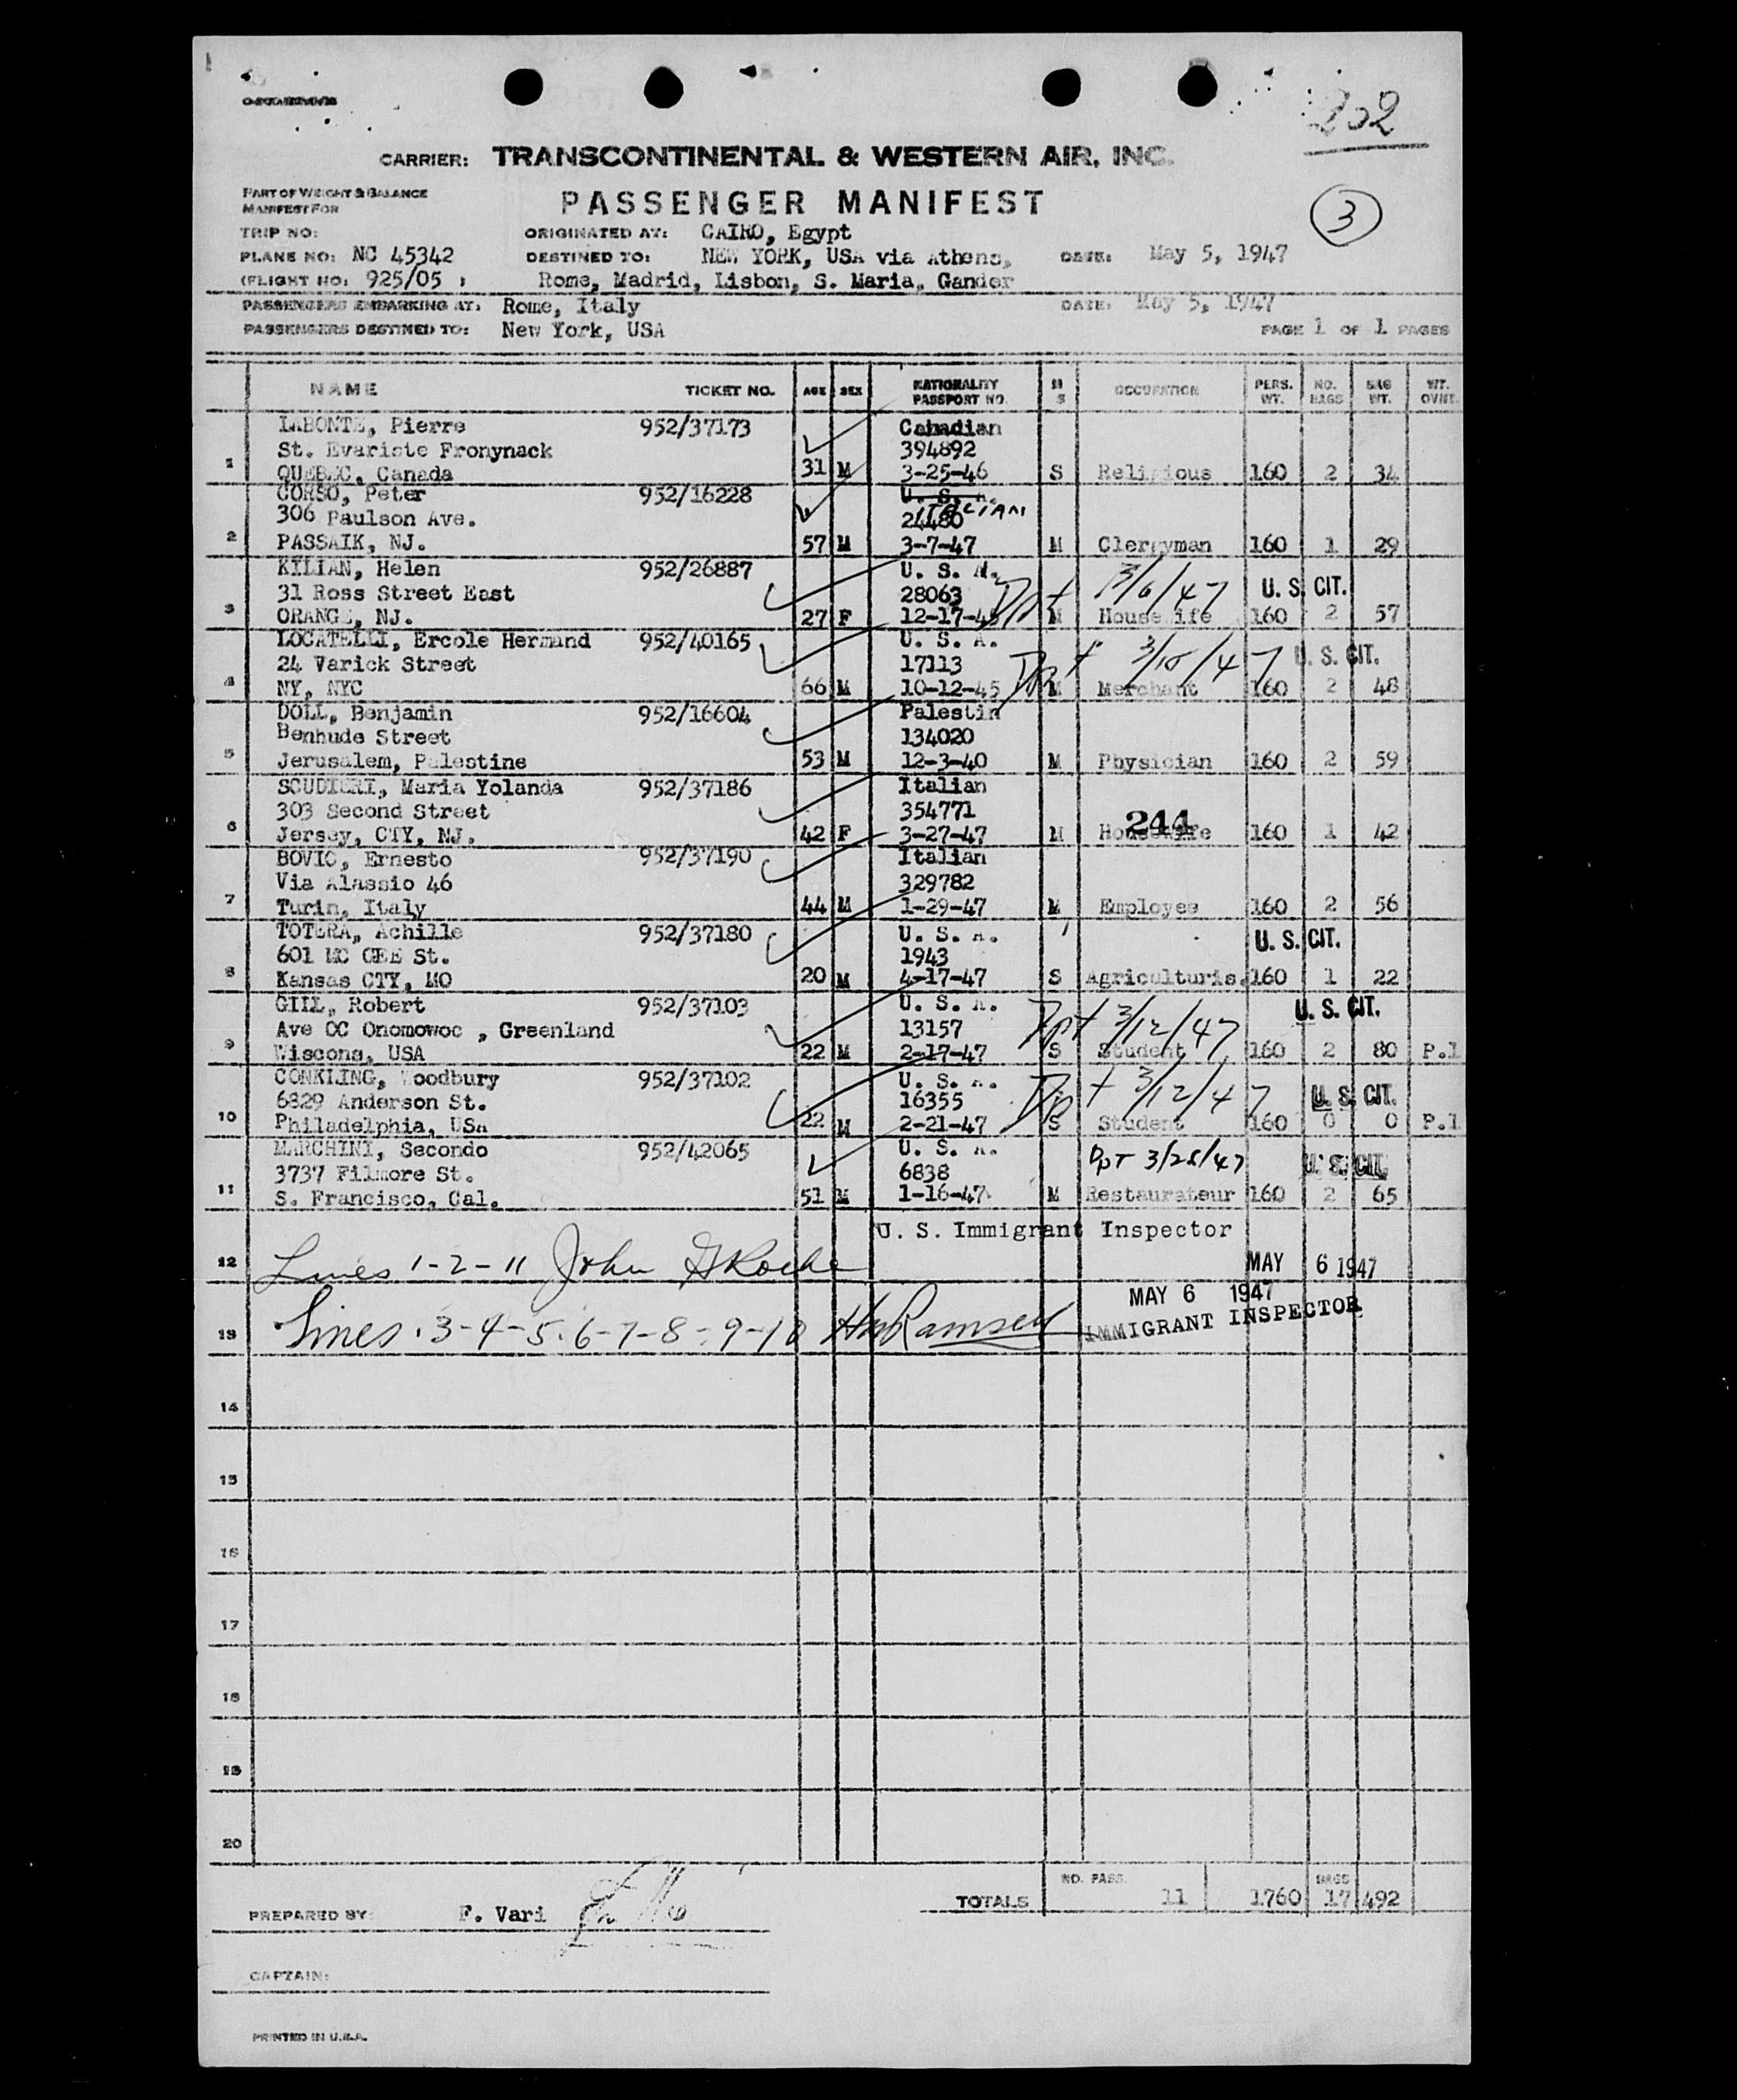 202
CARRIER: TRANSCONTINENTAL & WESTERN AIR, INC.
PART OF WEIGHT & BALANCE
MANIFEST FOR
PASSENGER MANIFEST
3
TRIP NO:
ORIGINATED AT: CAIRO, Egypt
PLANE NO: NC 45342
DESTINED TO: NEW YORK, USA via Athens,
DATE: May 5, 1947
(FLIGHT NO: 925/05 )
Rome, Madrid, Lisbon, S. Maria, Gander
PASSENGERS EMBARKING AT: Rome, Italy
DATE: May 5, 1947
PASSENGERS DESTINED TO: New York, USA
PAGE 1 OF 1 PAGES
NAME TICKET NO. AGE SEX NATIONALITY PASSPORT NO. M S OCCUPATION PERS. WT. NO. BAGS BAG WT. WT. OVNT.
LABONTE, Pierre 952/37173 Canadian
St. Evariste Fronynack 394892
1 QUEBEC, Canada 31 M 3-25-46 S Religious 160 2 34
CORSO, Peter 952/16228 U. S. A.
ITALIAN
306 Paulson Ave. 24480
2 PASSAIK, NJ. 57 M 3-7-47 M Clergyman 160 1 29
KILIAN, Helen 952/26887 U. S. A.
31 Ross Street East 28063 Dpt 3/6/47 U. S. CIT.
3 ORANGE, NJ. 27 F 12-17-45 M Housewife 160 2 57
LOCATELLI, Ercole Hermand 952/40165 U. S. A.
24 Varick Street 17113 Dpt 3/15/47 U. S. CIT.
4 NY, NYC 66 M 10-12-45 M Merchant 160 2 48
DOLL, Benjamin 952/16604 Palestin
Benhude Street 134020
5 Jerusalem, Palestine 53 M 12-3-40 M Physician 160 2 59
SCUDIERI, Maria Yolanda 952/37186 Italian
303 Second Street 354771
244
6 Jersey, CTY, NJ. 42 F 3-27-47 M Housewife 160 1 42
BOVIO, Ernesto 952/37190 Italian
Via Alassio 46 329782
7 Turin, Italy 44 M 1-29-47 M Employee 160 2 56
TOTERA, Achille 952/37180 U. S. A. U. S. CIT.
601 MC GEE St. 1943
8 Kansas CTY, MO 20 M 4-17-47 S Agriculturis. 160 1 22
GILL, Robert 952/37103 U. S. A. U. S. CIT.
Ave OC Onomowoc , Greenland 13157 Dpt 3/12/47
9 Wiscons, USA 22 M 2-17-47 S Student 160 2 80 P.1
CONKLING, Woodbury 952/37102 U. S. A.
6829 Anderson St. 16355 Dpt 3/12/47 U. S. CIT.
10 Philadelphia, USA 22 M 2-21-47 S Student 160 0 0 P.1
MARCHINI, Secondo 952/42065 U. S. A.
3737 Filmore St. 6838 DpT 3/28/47 U. S. CIT.
11 S. Francisco, Cal. 51 M 1-16-47 M Restaurateur 160 2 65
U. S. Immigrant Inspector
12 Lines 1-2-11 John G Roche MAY 6 1947
MAY 6 1947
13 Lines 3-4-5-6-7-8-9-10 Ramsey IMMIGRANT INSPECTOR
14
15
16
17
18
19
20
NO. PASS. BAGS
TOTALS 11 1760 17 492
PREPARED BY: F. Vari
CAPTAIN:
PRINTED IN U.S.A.